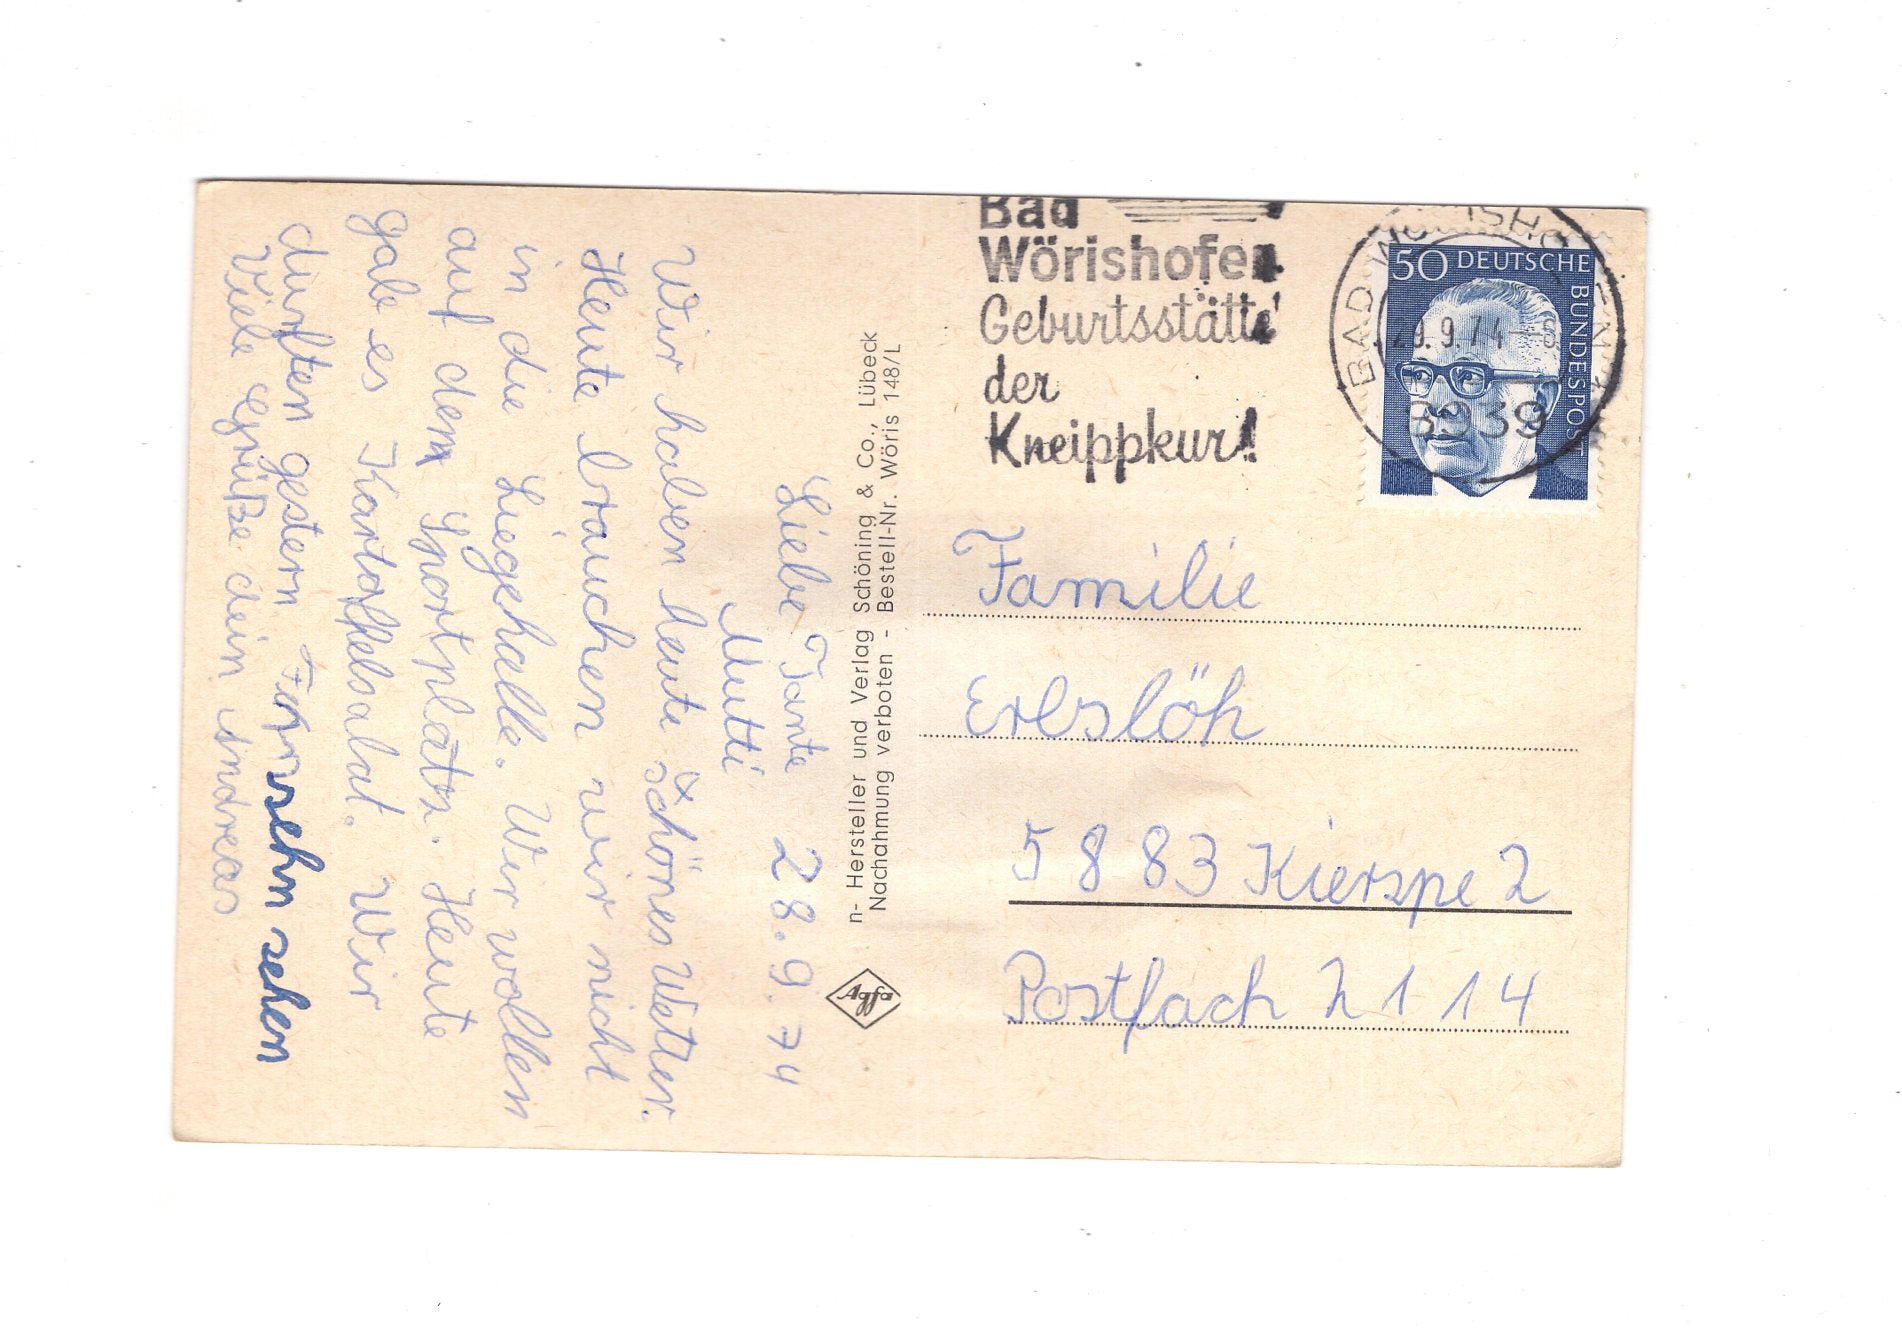 Liebe Tante 28.9.74
Mutti
Wir haben heute schönes Wetter.
Heute brauchen wir nicht
in die Liegehalle. Wir wollen
auf dem Sportplatz. Heute
gab es Kartoffelsalat. Wir
durften gestern Fernsehn sehen
Viele Grüße dein Andreas
n- Hersteller und Verlag Schöning & Co., Lübeck
Nachahmung verboten - Bestell-Nr. Wöris 148/L
Agfa
Bad
Wörishofen
Geburtsstätte
der
Kneippkur!
BAD WÖRISHOFEN
29.9.74-8
8939
50 DEUTSCHE BUNDESPOST
Familie
Erbslöh
5883 Kierspe 2
Postfach 2114